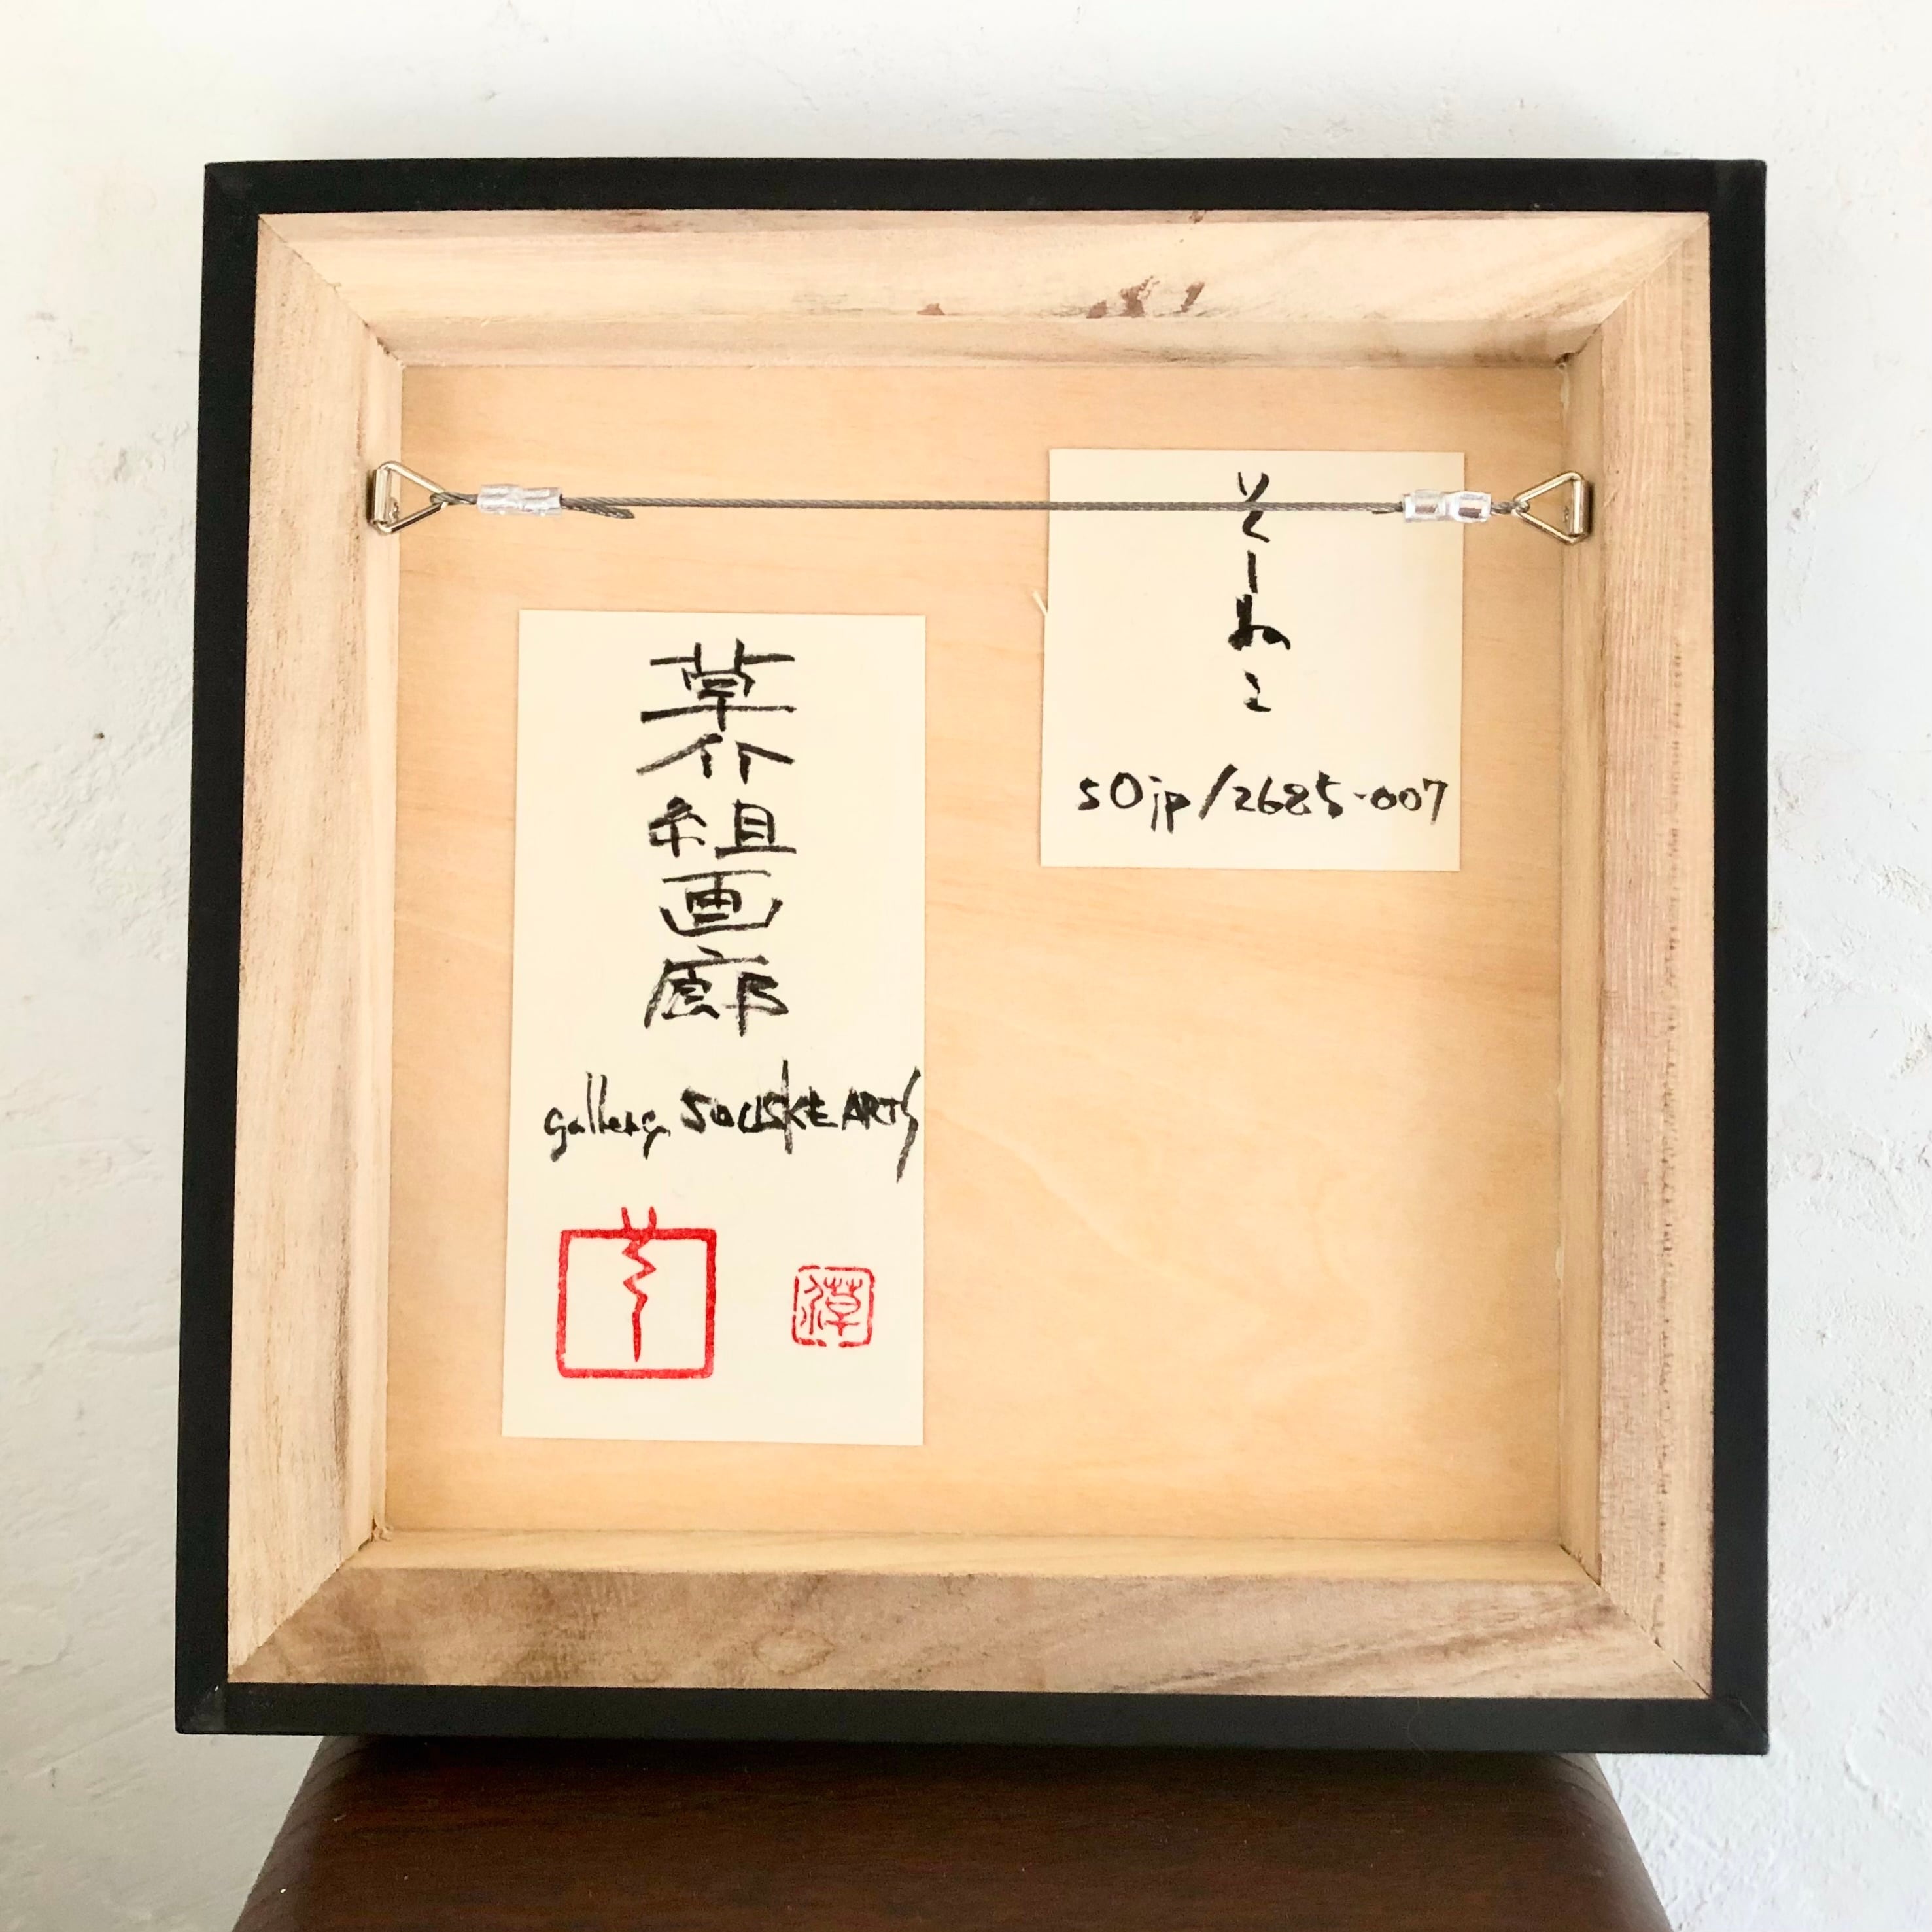 そーねこ
sojp/2685-007
草介組画廊
gallery SOUSKE ARTS
草